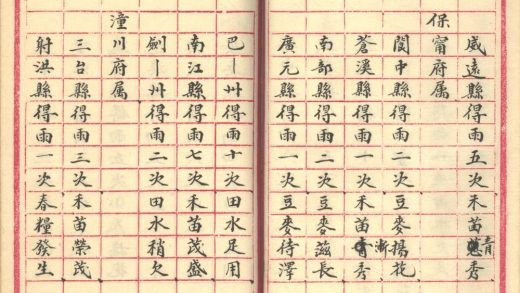 威遠縣得雨五次禾苗青秀
保甯府属
閬中縣得雨二次豆麥揚花
蒼溪縣得雨一次禾苗漸秀
南部縣得雨二次豆麥滋長
廣元縣得雨一次豆麥待澤
巴丨州得雨十次田水足用
南江縣得雨七次禾苗茂盛
劍丨州得雨二次田水稍欠
潼川府属
三台縣得雨三次禾苗榮茂
射洪縣得雨一次春糧發生